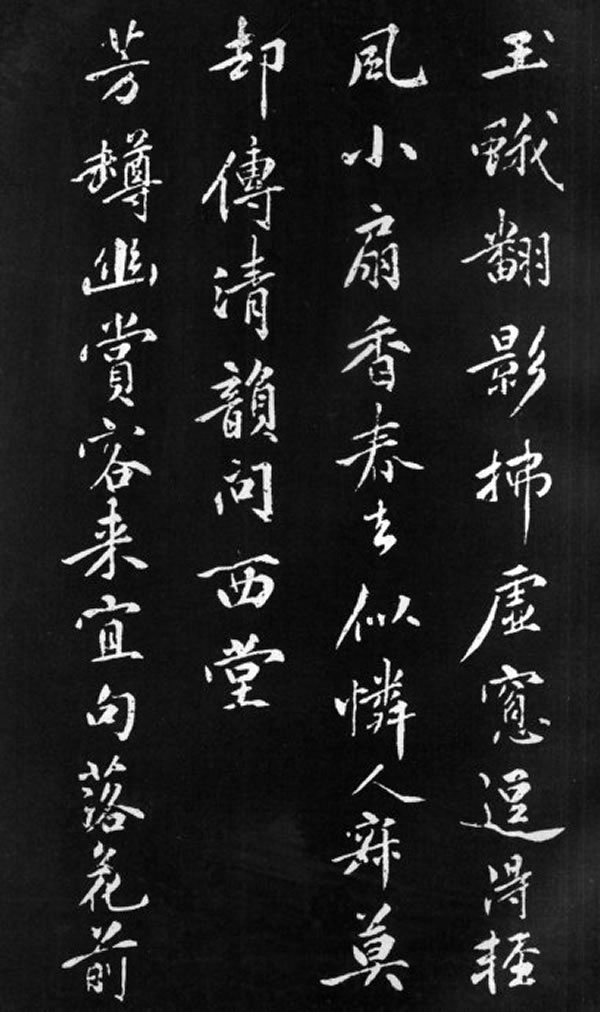 玉蛾翻影拂虛窓逗得輕
風小扇香春去似憐人寂莫
却傳清韻向西堂
芳樽幽賞客來宜句落花前